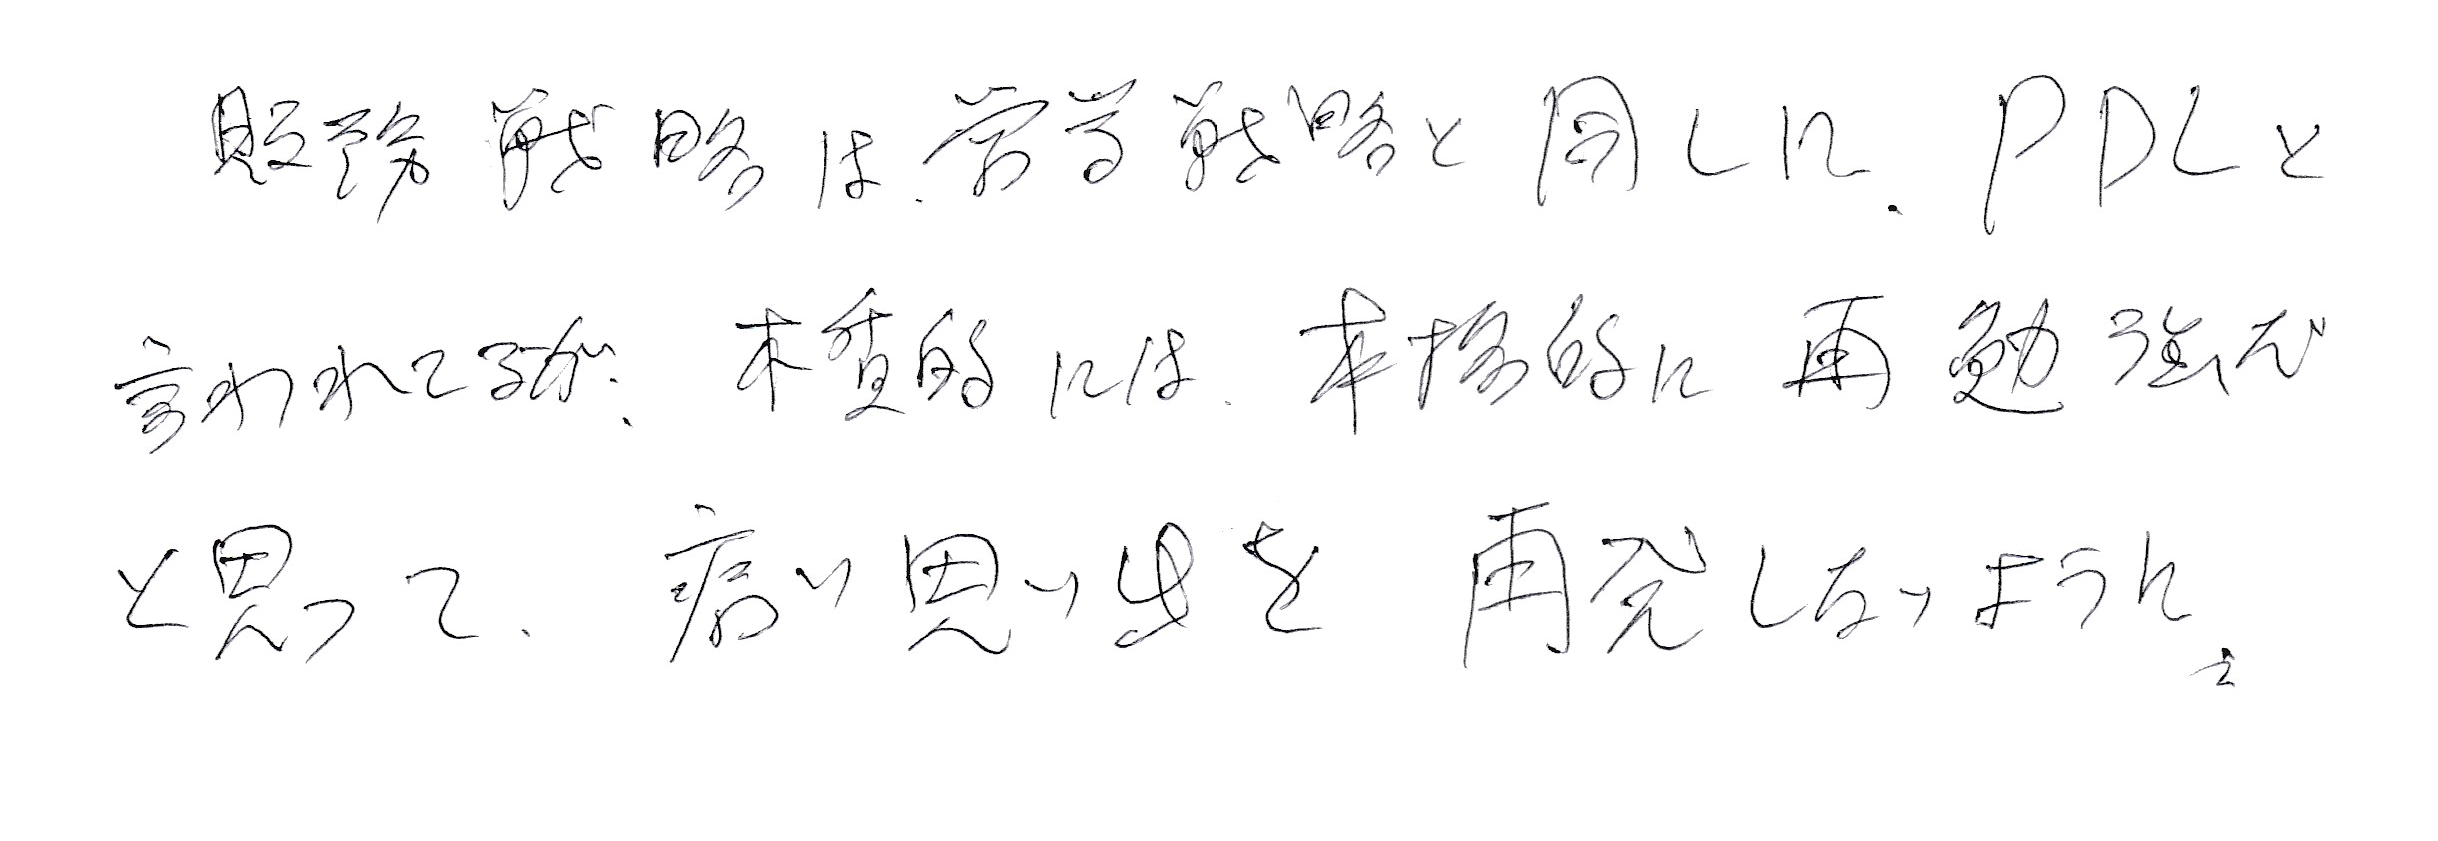 財務戦略は、学習戦略と同じに、PDLと
言われてるが、本質的には、本格的に再勉強だ
と思って、病い思い出を再発しないように